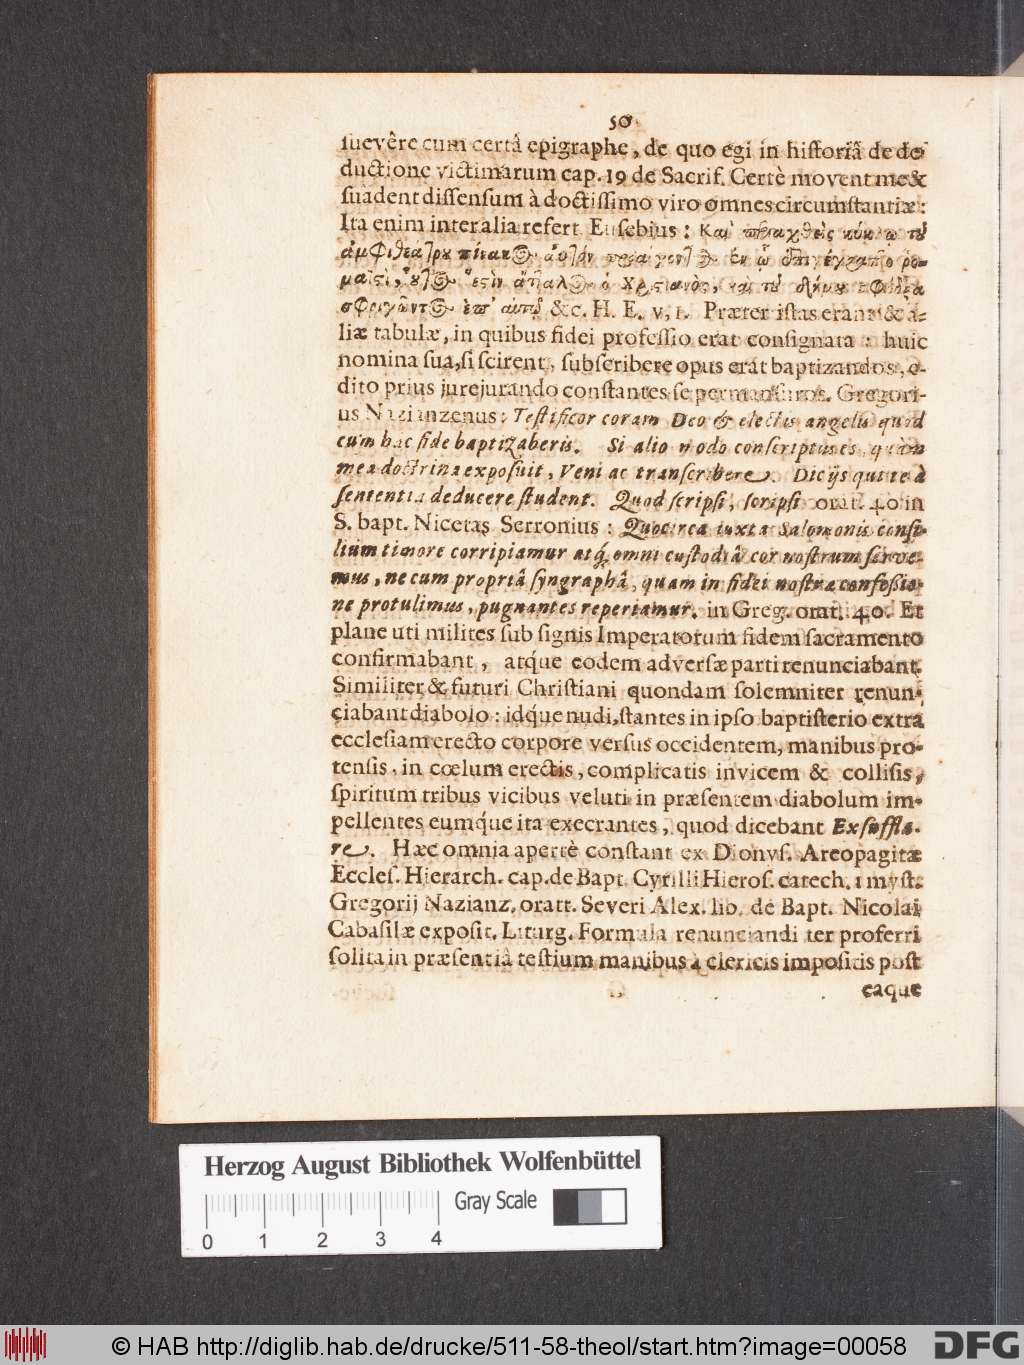 50
suevêre cum certâ epigraphe, de quo egi in historiâ de de
ductione victimarum cap. 19 de Sacrif. Certè movent me &
suadent dissensum à doctissimo viro omnes circumstantiæ:
Ita enim inter alia refert Eusebius: Καὶ περιαχθεὶς κύκλῳ τοῦ
ἀμφιθεάτρου πίνακος αὐτὸν προάγοντος ἐν ᾧ ἐπεγέγραπτο ῥω-
μαϊστὶ, οὗτός ἐστιν ἄτταλος ὁ Χριστιανὸς, καὶ τοῦ δήμου σφόδρα
σφριγῶντος ἐπ' αὐτῷ &c. H. E. v, 1. Præter istas erant & a-
liæ tabulæ, in quibus fidei professio erat consignata: huic
nomina sua, si scirent, subscribere opus erat baptizandos, e-
dito prius jurejurando constantes se permansuros. Gregori-
us Nazianzenus: Testificor coram Deo & electis angelis quod
cum hac fide baptizaberis. Si alio modo conscriptus es, quàm
mea doctrina exposuit, Veni ac transcribere. Dic ijs qui te à
sententia deducere student. Quod scripsi, scripsi orat. 40 in
S. bapt. Nicetas Serronius: Quocirca iuxta Salomonis consi-
lium timore corripiamur atq́; omni custodiâ cor nostrum serve-
mus, ne cum propriâ syngraphâ, quam in fidei nostræ confessio-
ne protulimus, pugnantes reperiamur. in Greg. orat. 40. Et
plane uti milites sub signis Imperatorum fidem sacramento
confirmabant, atq́ue eodem adversæ parti renunciabant.
Similiter & futuri Christiani quondam solemniter renun-
ciabant diabolo: idq́ue nudi, stantes in ipso baptisterio extra
ecclesiam erecto corpore versus occidentem, manibus pro-
tensis, in cœlum erectis, complicatis invicem & collisis,
spiritum tribus vicibus veluti in præsentem diabolum im-
pellentes eumq́ue ita execrantes, quod dicebant Exsuffla-
re. Hæc omnia apertè constant ex Dionys. Areopagitæ
Eccles. Hierarch. cap. de Bapt. Cyrilli Hieros. catech. 1 myst.
Gregorij Nazianz. oratt. Severi Alex. lib. de Bapt. Nicolai
Cabasilæ exposit. Liturg. Formula renunciandi ter proferri
solita in præsentiâ testium manibus à clericis impositis post
eaque
Herzog August Bibliothek Wolfenbüttel
Gray Scale
0 1 2 3 4
© HAB http://diglib.hab.de/drucke/511-58-theol/start.htm?image=00058
DFG